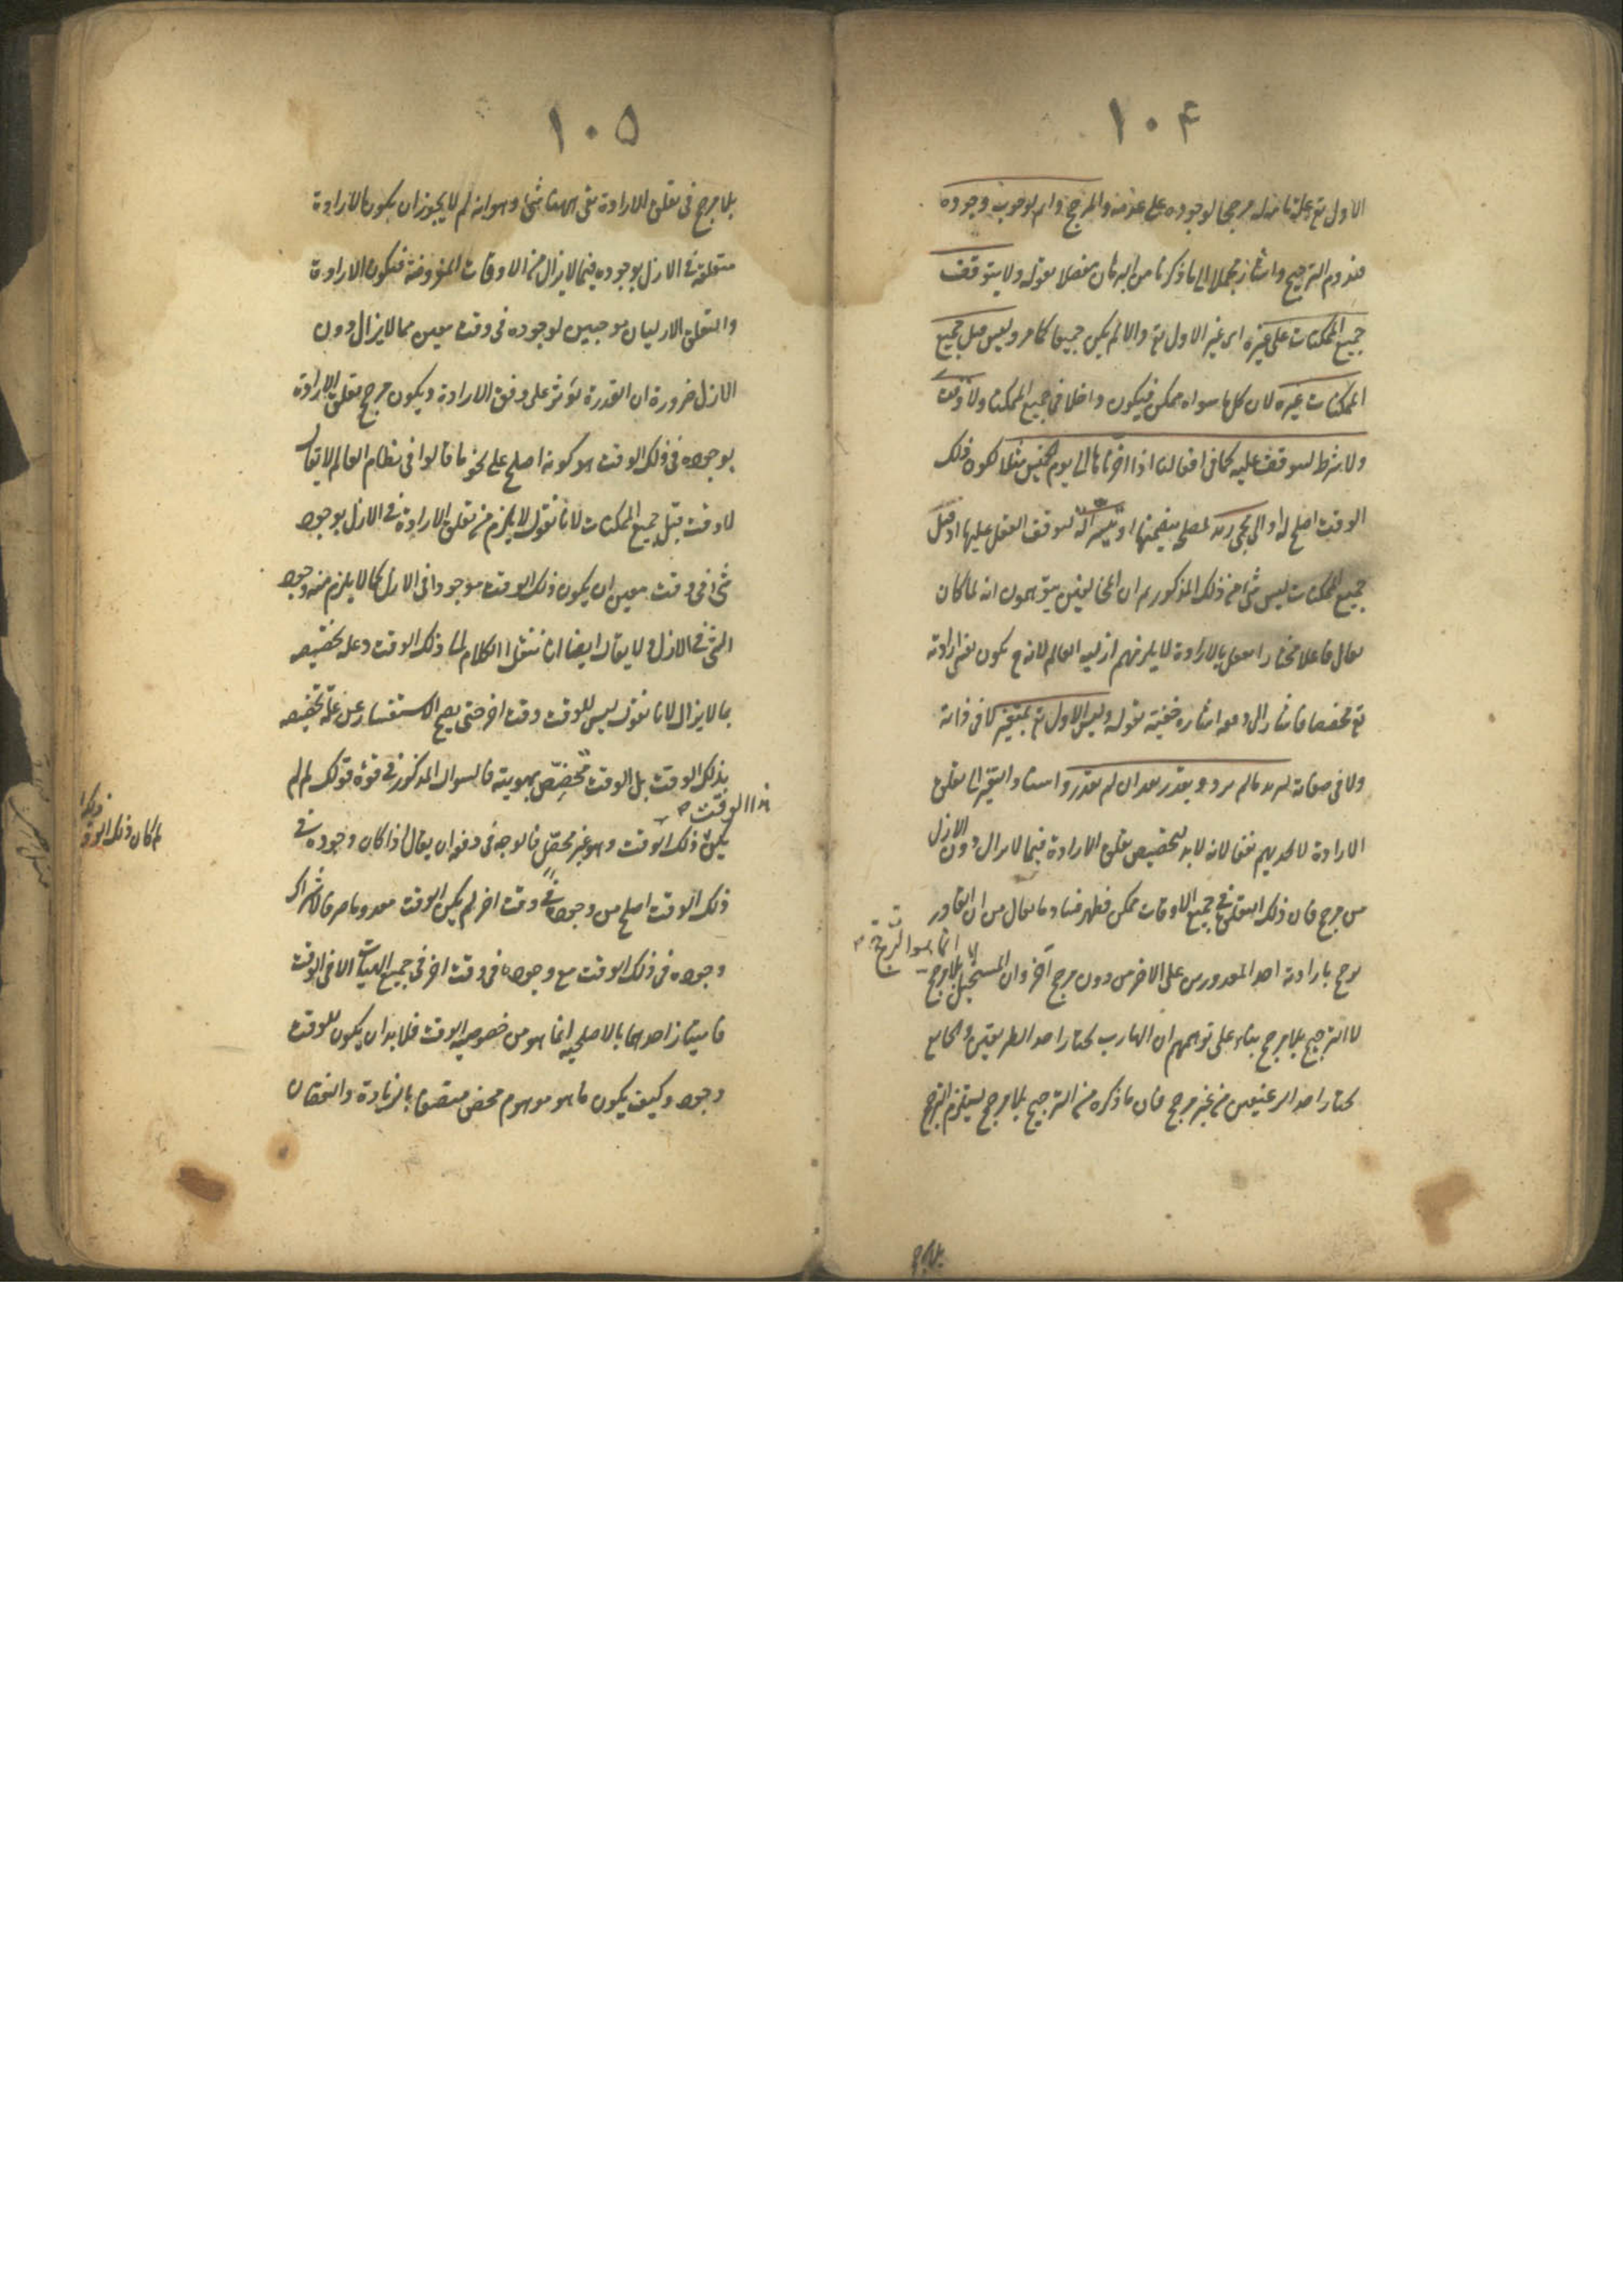 ۱۰۴
الاول تع وعلة تامة له مرجحا لوجوده على عدمه والمرجح دائم لوجوب وجوده
فيدوم الترجيح واشار مجملا الى ما ذكرنا من البرهان مفصلا بقوله ولا يتوقف
جميع الممكنات على غيره اى غير الاول تع والا لم يكن جميعا كما مر وليس قبل جميع
الممكنات غيره لان كل ما سواه ممكن فيكون داخلا فى جميع الممكنات ولا وقت
ولا شرط ليتوقف عليه كما فى افعالنا اذا اخرناها الى يوم الخميس مثلا لكون ذلك
الوقت اصلح له او الى مجئ زيد لمصلحة يتضمنها او تيسر آلة ليتوقف الفعل عليها اذ قبل
جميع الممكنات ليس شئ من ذلك المذكور ثم ان المخالفين يتوهمون انه لما كان
تعالى فاعلا مختارا يفعل بالارادة لا يلزمهم ازلية العالم لانه ح يكون نفس ارادته
تع مخصصا فاشار الى دفعه اشارة خفية بقوله وليس الاول تع بمتغير لا فى ذاته
ولا فى صفاته ليريد ما لم يرد ويقدر بعد ان لم يقدر واسناد التغير الى تعلق
الارادة لا يجديهم نفعا لانه لا بد لتخصيص تعلق الارادة فيما لا يزال دون الازل
من مرجح فان ذلك التعلق فى جميع الاوقات ممكن فظهر فساد ما يقال من ان القادر
يرجح بارادته احد المقدورين على الاخر من دون مرجح آخر وان المستحيل انما هو الترجح بلا مرجح
لا الترجيح بلا مرجح بناء على توهمهم ان الهارب يختار احد الطريقين والجايع
يختار احد الرغيفين من غير مرجح فان ما ذكره من الترجيح بلا مرجح يستلزم الترجح
بلا مرجح
۱۰۵
بلا مرجح فى تعلق الارادة بقى ههنا شئ وهو انه لم لا يجوز ان يكون الارادة
متعلقة فى الازل بوجوده فيما لا يزال من الاوقات المفروضة فيكون الارادة
والتعلق الازليان موجبين لوجوده فى وقت معين مما لا يزال دون
الازل ضرورة ان القدرة تؤثر على وفق الارادة ويكون مرجح تعلق الارادة
بوجوده فى ذلك الوقت هو كونه اصلح على نحو ما قالوا فى نظام العالم لا يقال
لا وقت قبل جميع الممكنات لانا نقول لا يلزم من تعلق الارادة فى الازل بوجود
شئ فى وقت معين ان يكون ذلك الوقت موجودا فى الازل كما لا يلزم منه وجود
الشئ فى الازل ولا يقال ايضا انا ننقل الكلام الى ذلك الوقت وعلة تخصيصه
بما لا يزال لانا نقول ليس للوقت وقت اخر حتى يصح الاستفسار عن علة تخصيصه
بذلك الوقت بل الوقت متخصص بهويته فالسوال المذكور فى قوة قولك لم لم
يكن ذلك الوقت هذا الوقت وهو غير محصل فالوجه فى دفعه ان يقال اذا كان وجوده فى
ذلك الوقت اصلح من وجوده فى وقت اخر لم يكن الوقت معدوما صرفا لاشتراك
وجوده فى ذلك الوقت مع وجوده فى وقت اخر فى جميع الهيآت الا فى الوقت
فامتياز احدهما بالاصلحية انما هو من خصوصية الوقت فلا بد ان يكون للوقت
وجود وكيف يكون ما هو موهوم محض متصفا بالزيادة والنقصان
لم كان ذلك الوقت